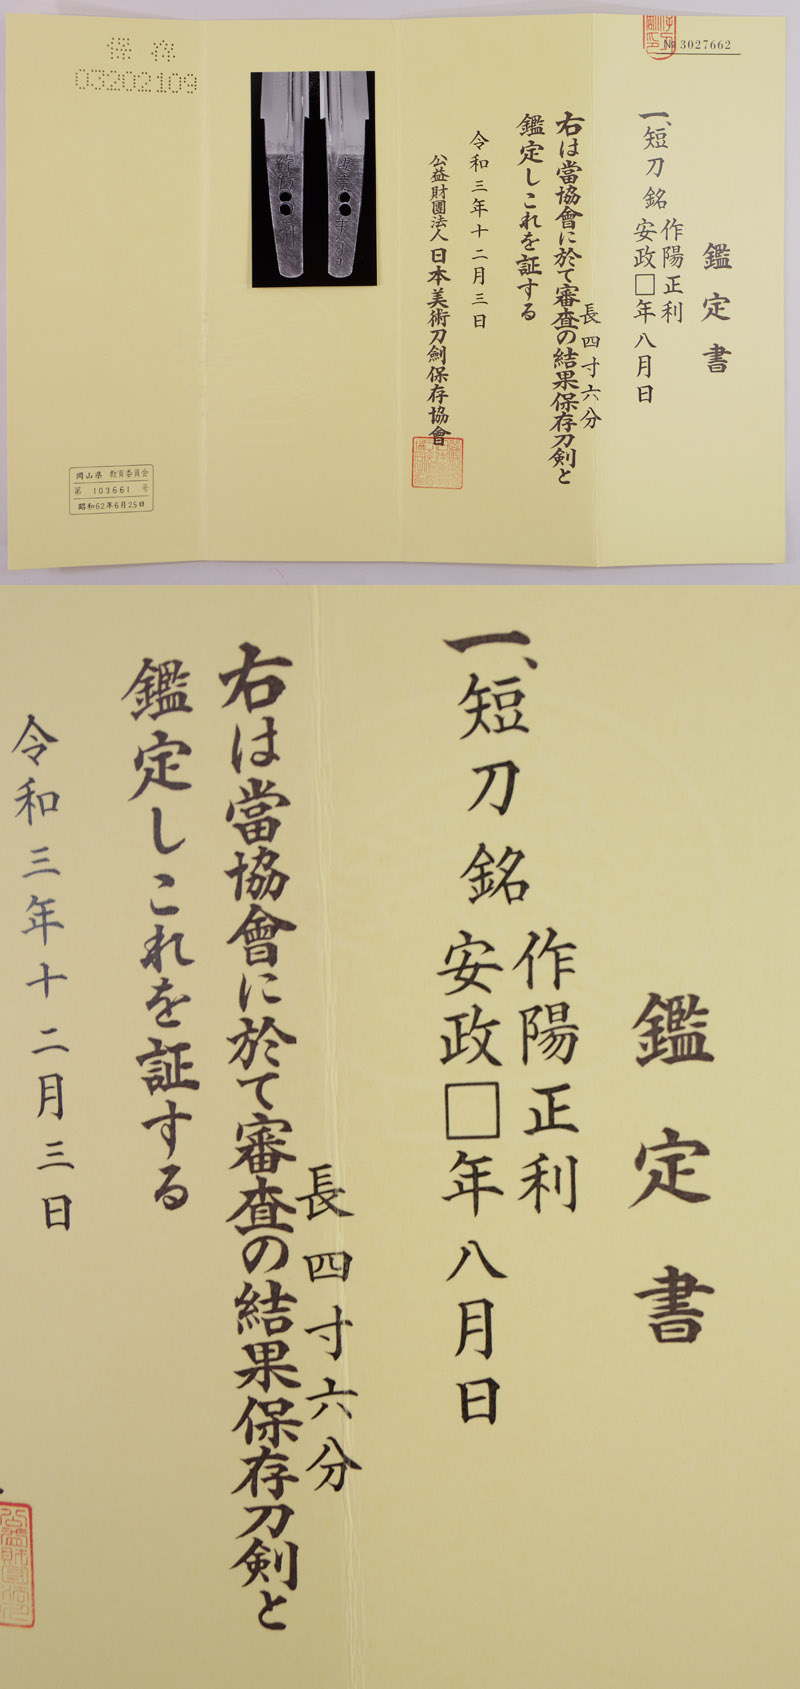 № 3027662
鑑定書
一、短刀 銘 作陽正利
安政□年八月日
長四寸六分
右は當協會に於て審査の結果保存刀剣と
鑑定しこれを証する
令和三年十二月三日
公益財團法人日本美術刀劍保存協會
保存
03202109
岡山県 教育委員会
第 103661 号
昭和62年6月25日
鑑定書
一、短刀 銘 作陽正利
安政□年八月日
長四寸六分
右は當協會に於て審査の結果保存刀剣と
鑑定しこれを証する
令和三年十二月三日